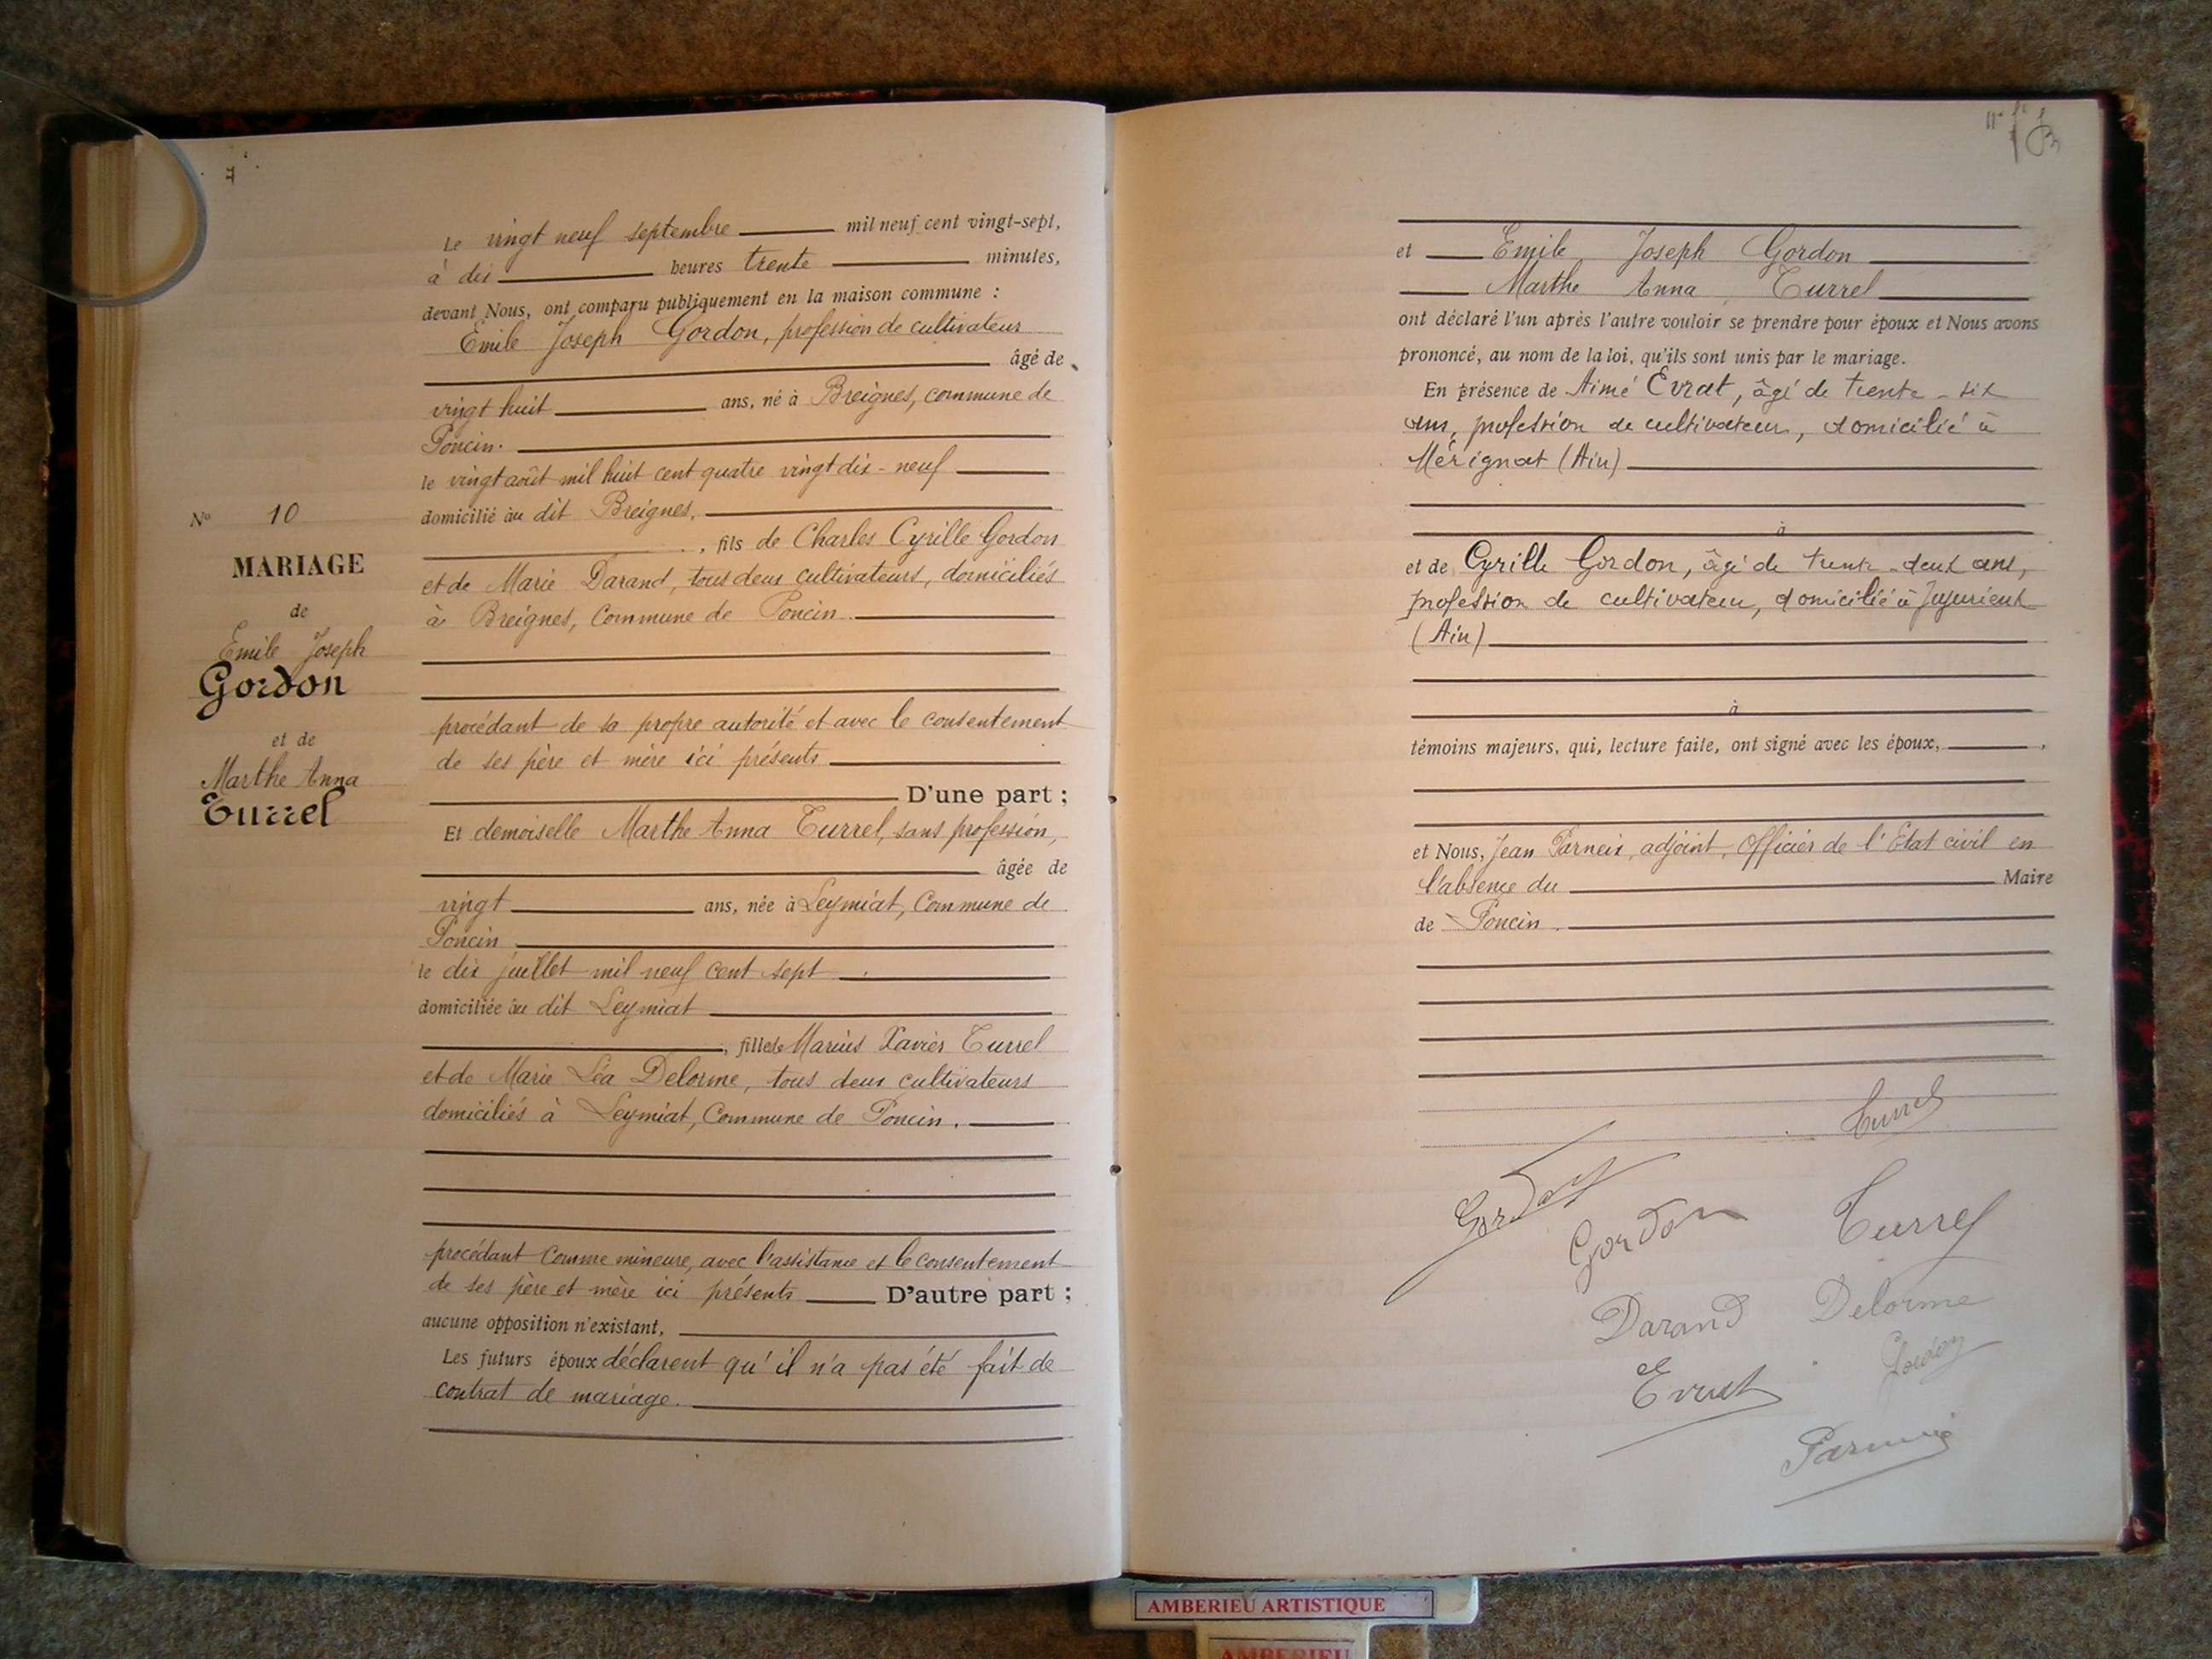 Nº 10
MARIAGE
de
Emile Joseph
Gordon
et de
Marthe Anna
Turrel
Le vingt neuf septembre mil neuf cent vingt-sept,
à dix heures trente minutes,
devant Nous, ont comparu publiquement en la maison commune :
Emile Joseph Gordon, profession de cultivateur
âgé de
vingt huit ans, né à Breignes, commune de
Poncin.
le vingt août mil huit cent quatre vingt dix-neuf
domicilié au dit Breignes,
, fils de Charles Cyrille Gordon
et de Marie Darand, tous deux cultivateurs, domiciliés
à Breignes, Commune de Poncin.
procédant de sa propre autorité et avec le consentement
de ses père et mère ici présents
D'une part ;
Et demoiselle Marthe Anna Turrel, sans profession,
âgée de
vingt ans, née à Leymiat, Commune de
Poncin
le dix juillet mil neuf cent sept
domiciliée au dit Leymiat
, fille de Marius Xavier Turrel
et de Marie Léa Delorme, tous deux cultivateurs
domiciliés à Leymiat, Commune de Poncin.
procédant comme mineure, avec l'assistance et le consentement
de ses père et mère ici présents D'autre part ;
aucune opposition n'existant,
Les futurs époux déclarent qu'il n'a pas été fait de
contrat de mariage.
et Emile Joseph Gordon
Marthe Anna Turrel
ont déclaré l'un après l'autre vouloir se prendre pour époux et Nous avons
prononcé, au nom de la loi, qu'ils sont unis par le mariage.
En présence de Aimé Evrat, âgé de trente-six
ans, profession de cultivateur, domicilié à
Mérignat (Ain)
à
et de Cyrille Gordon, âgé de trente-deux ans,
profession de cultivateur, domicilié à Jujurieux
(Ain)
à
témoins majeurs, qui, lecture faite, ont signé avec les époux,
et Nous, Jean Parneix, adjoint, Officier de l'Etat civil en
l'absence du Maire
de Poncin.
Turrel
Gordon
Gordon Turrel
Darand Delorme
Evrat Gordon
Parneix
AMBERIEU ARTISTIQUE
AMBERIEU